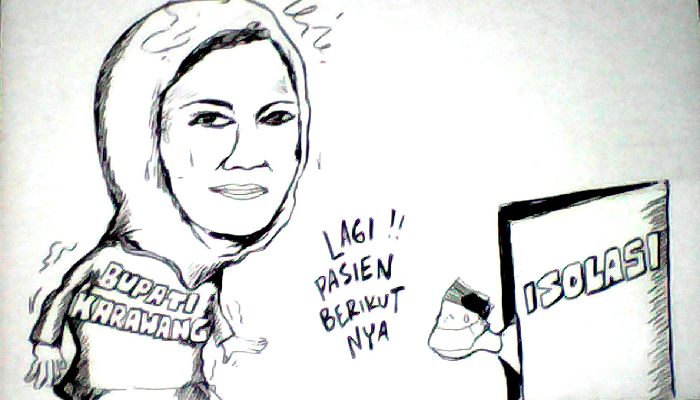 BUPATI
KARAWANG
LAGI !!
PASIEN
BERIKUT
NYA
ISOLASI